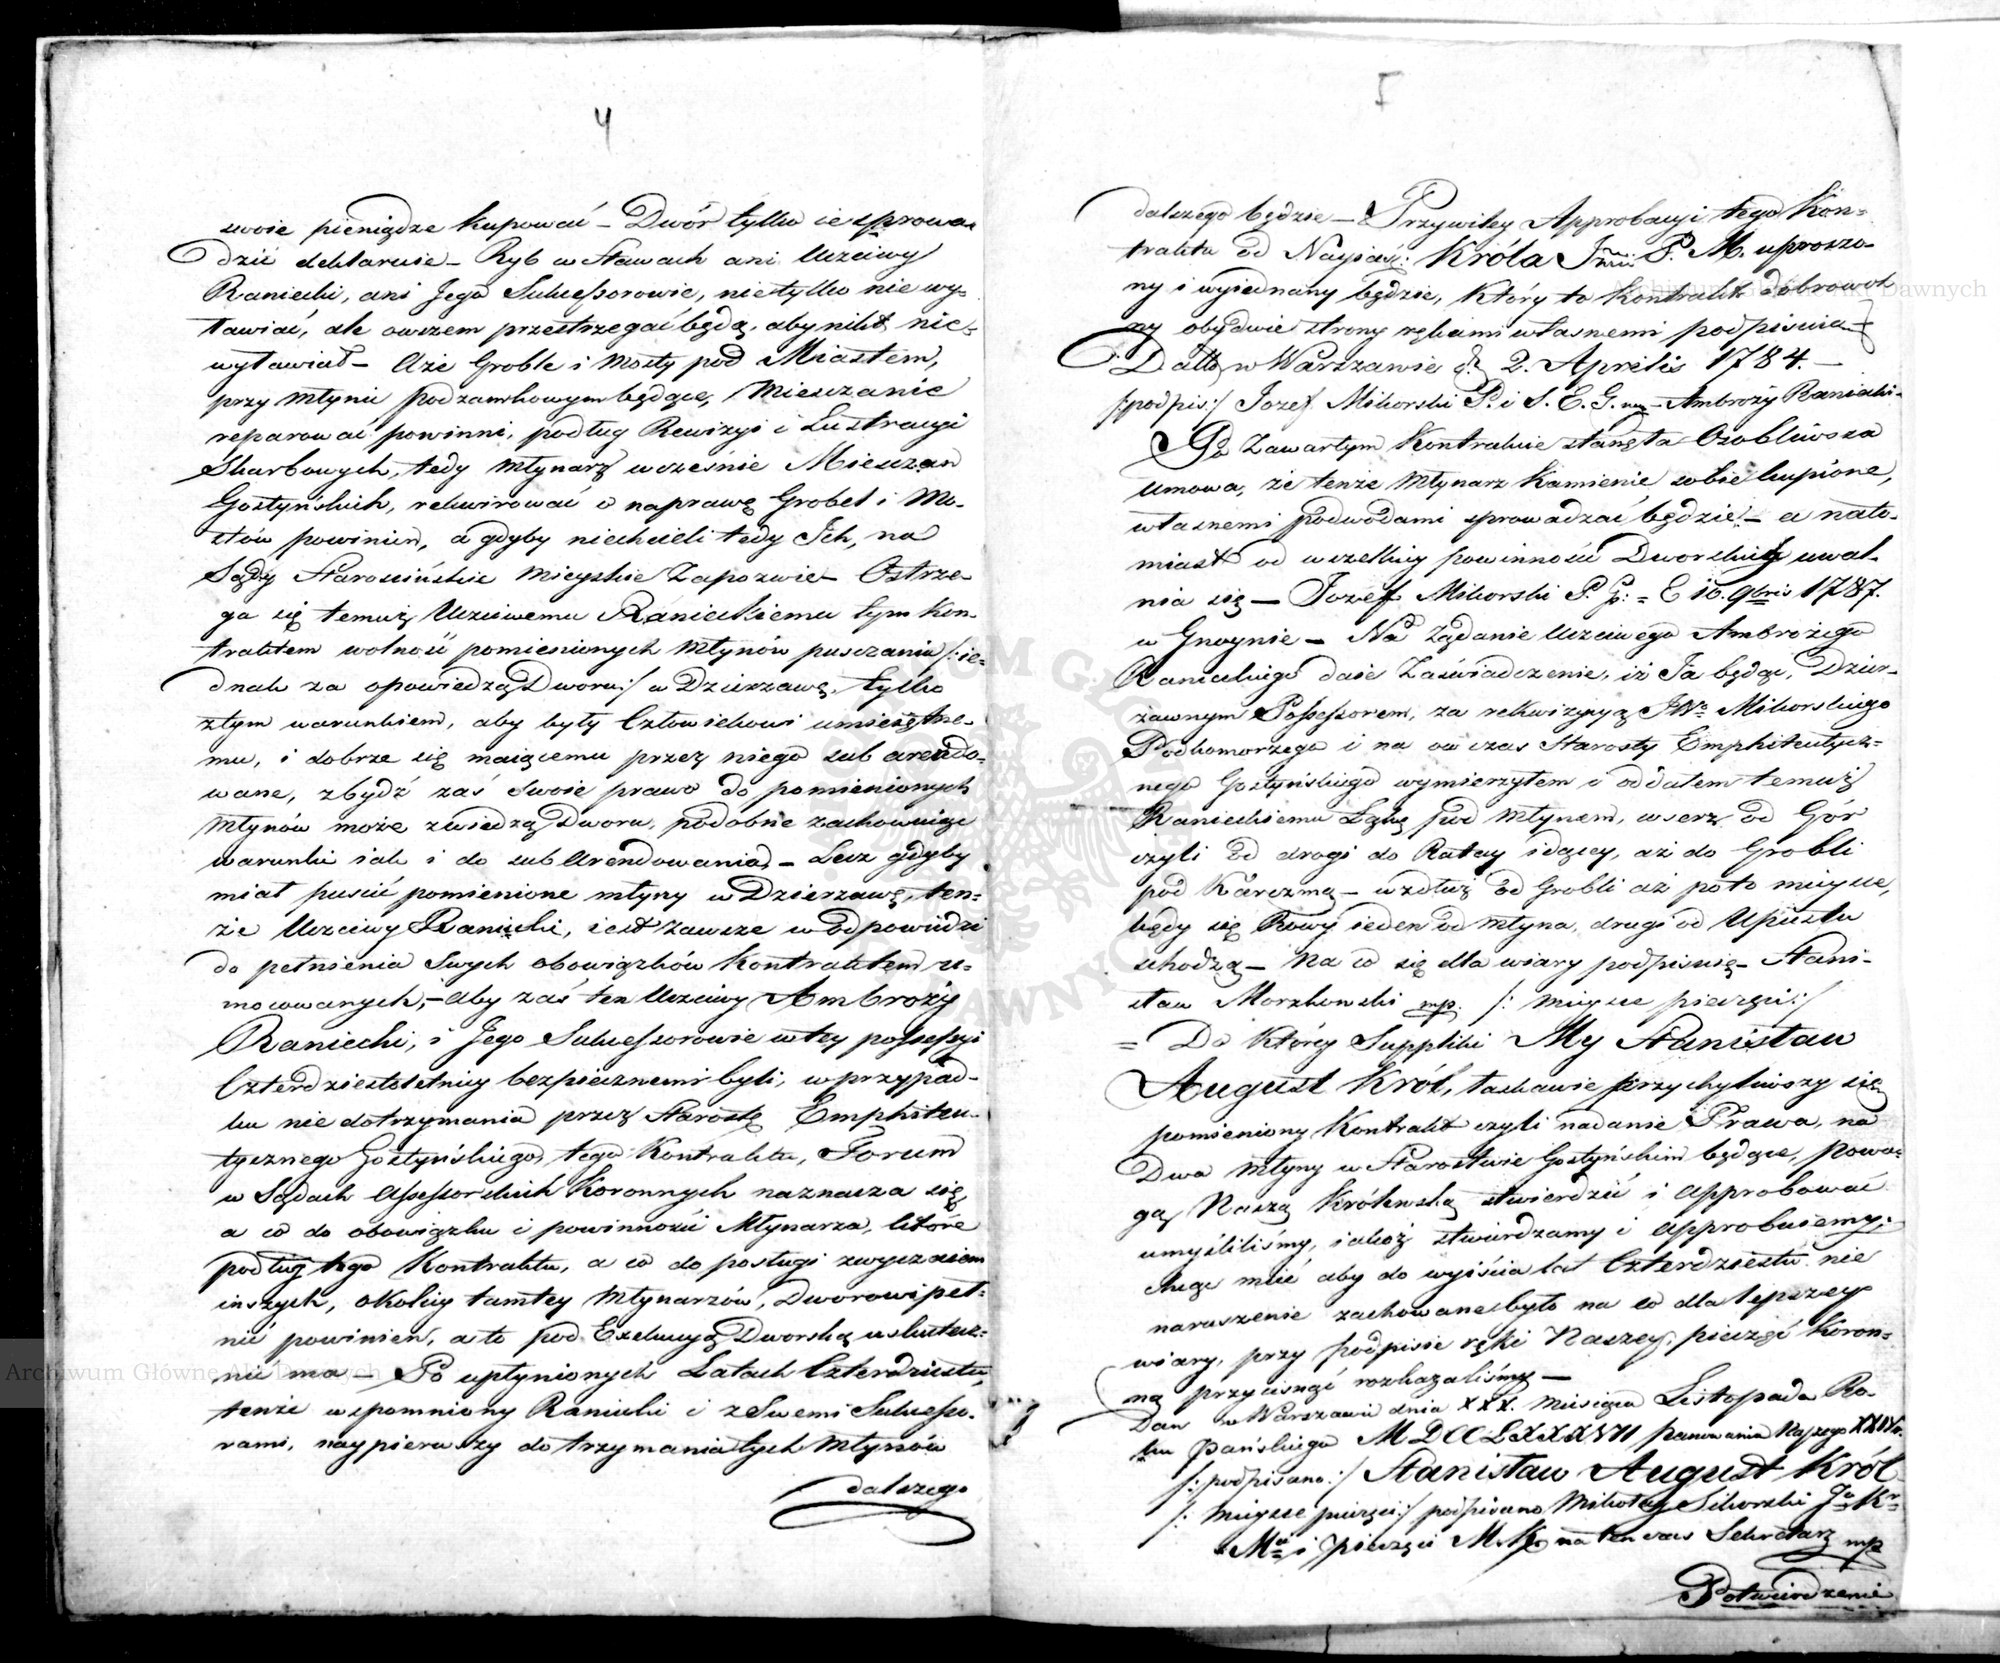 4
swoie pieniądze kupować – Dwór tylko ie sprowa=
dzić deklaruie – Ryb w Stawach ani Uczciwy
Raniecki, ani Jego Sukcessorowie, nie tylko nie wy=
ławiać, ale owszem przestrzegać będą, aby nikt nie=
wyławiał – Aże Groble i Mosty pod Miastem,
przy Młynie podzamkowym będące, Mieszczanie
reparować powinni, podług Rewizyi i Lustracyi
Skarbowych, tedy Młynarz wcześnie Mieszczan
Gostyńskich, rekwirować o naprawę Grobel i Mo=
stów powinien, a gdyby niechcieli tedy Ich, na
Sądy Starościńskie Mieyskie Zapozwie – Ostrze=
ga się temuż Uczciwemu Ranieckiemu tym Kon=
traktem wolność pomienionych Młynów puszczania /: ie=
dnak za opowiedzą Dworu :/ w Dzierżawę, tylko
z tym warunkiem, aby były Człowiekowi umieiętne=
mu, i dobrze się maiącemu przez niego sub arendo=
wane, zbydź zaś swoie prawo do pomienionych
Młynów może z wiedzą Dworu, podobne zachowuiąc
warunki iak i do sub Arendowania – Lecz gdyby
miał puścić pomienione młyny w Dzierżawę, ten=
że Uczciwy Raniecki, iest zawsze w odpowiedzi
do pełnienia swych obowiązków Kontraktem u=
mowionych, – Aby zaś ten Uczciwy Ambroży
Raniecki, i Jego Sukcessorowie w tey possessyi
Czterdziestoletniey bezpiecznemi byli, w przypad=
ku nie dotrzymania przez Starostę Emphiteu=
tycznego Gostyńskiego, tego Kontraktu, Forum
w Sądach Assessorskich Koronnych naznacza się,
a co do obowiązku i powinności Młynarza, które
podług tego Kontraktu, a co do posługi zwyczaiem
inszych, okolicy tamtey Młynarzów, Dworowi peł=
nić powinien, a to pod Exekucyą Dworską uskutecz=
nić ma – Po upłynionych Latach Czterdziestu,
tenże wspomniony Raniecki i z Swemi Sukcesso=
rami, naypierwszy do trzymania tych Młynów
dalszego
5
dalszego będzie – Przywiley Approbacyi tego Kon=
traktu od Nayiaś: Króla Jmci P. M. uproszo=
ny i wyiednany będzie, który to Kontrakt dobrowol
ny obydwie strony rękami własnemi podpisuią –
Datt w Warszawie d. 2. Aprilis 1784. –
/: podpis :/ Jozef Mikorski P. i S. E. G. mp – Ambroży Raniecki –
Po Zawartym Kontrakcie stanęła Osobliwsza
Umowa, że tenże Młynarz Kamienie sobie kupione,
własnemi podwodami sprowadzać będzie – a nato=
miast od wszelkiey powinności Dworskiey uwal=
nia się – Jozef Mikorski P. G: = E 10. 9bris 1787.
w Gnoynie – Na Żądanie Uczciwego Ambrożego
Ranieckiego daię Zaświadczenie, iż Ja będąc, Dzier=
żawnym Possessorem, za rekwizycyą JWo Mikorskiego
Podkomorzego i na ow czas Starosty Emphiteutycz=
nego Gostyńskiego wymierzyłem i oddałem temuż
Ranieckiemu Łąkę pod Młynem, wszerz od Gór
czyli od drogi do Ratay idącey, aż do Grobli
pod Karczmą – wzdłuż od Grobli aż po to mieysce,
kędy się Rowy ieden od Młyna, drugi od Upustu
schodzą – Na co się dla wiary podpisuię – Stani=
sław Morzkowski mp. /: mieysce pieczęci :/
= Do którey Suppliki My Stanisław
August Król, łaskawie przychyliwszy się
pomieniony Kontrakt czyli nadanie Prawa, na
Dwa Młyny w Starostwie Gostyńskim będące, powa=
gą Naszą Królewską stwierdzić i approbować
umyśliliśmy, iakoż stwierdzamy i approbuiemy.
chcąc mieć aby do wyiścia lat Czterdziestu nie
naruszenie zachowane było na co dla lepszey
wiary, przy podpisie ręki Naszey, pieczęć Koron=
ną przycisnąć rozkazaliśmy –
Dan w Warszawie dnia XXX. Miesiąca Listopada Ro=
ku Pańskiego MDCCLXXXVII panowania Naszego XXIV.
/: podpisano :/ Stanisław August Król
/: mieysce pieczęci :/ podpisano Mikołay Sikorski
i pieczęci M. K. na ten czas Sekretarz mp
Potwierdzenie
Archiwum Główne Akt Dawnych
Archiwum Główne Akt Dawnych